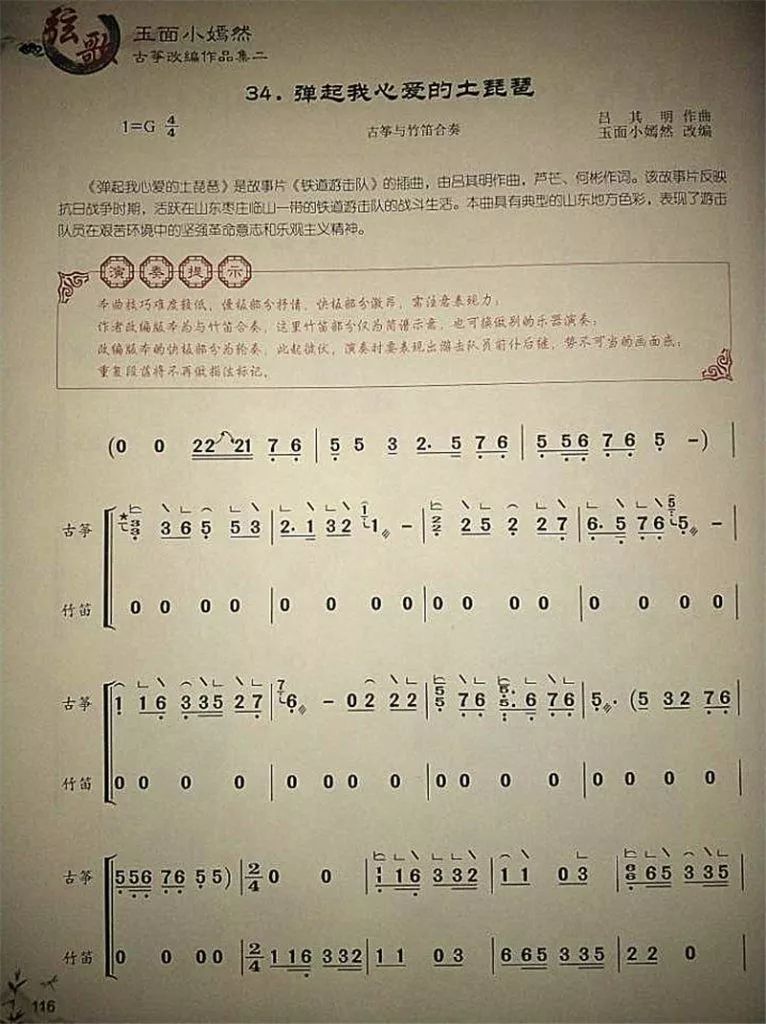 弦歌
玉面小嫣然
古筝改编作品集二
34. 弹起我心爱的土琵琶
1=G 4/4
古筝与竹笛合奏
吕其明 作曲
玉面小嫣然 改编
《弹起我心爱的土琵琶》是故事片《铁道游击队》的插曲，由吕其明作曲，芦芒、何彬作词。该故事片反映
抗日战争时期，活跃在山东枣庄临山一带的铁道游击队的战斗生活。本曲具有典型的山东地方色彩，表现了游击
队员在艰苦环境中的坚强革命意志和乐观主义精神。
演奏提示
本曲技巧难度较低，慢板部分抒情，快板部分激昂，需注意表现力；
作者改编版本为与竹笛合奏，这里竹笛部分仅为简谱示意，也可换做别的乐器演奏；
改编版本的快板部分为轮奏，此起彼伏，演奏时要表现出游击队员前仆后继，势不可当的画面感；
重复段落将不再做指法标记。
(0 0 22 21 7 6 | 5 5 3 2. 5 7 6 | 5 5 6 7 6 5 -) |
古筝 3 3 3 6 5 5 3 | 2. 1 3 2 1 - | 2 2 2 5 2 2 7 | 6. 5 7 6 5 - |
竹笛 0 0 0 0 | 0 0 0 0 | 0 0 0 0 | 0 0 0 0 |
古筝 1 1 6 3 3 5 2 7 | 6 - 0 2 2 2 | 5 5 7 6 5. 6 7 6 | 5. (5 3 2 7 6 |
竹笛 0 0 0 0 | 0 0 0 0 | 0 0 0 0 | 0 0 0 0 |
古筝 5 5 6 7 6 5 5) | 2/4 0 0 | 1 1 1 6 3 3 2 | 1 1 0 3 | 6 6 6 5 3 3 5 |
竹笛 0 0 0 0 | 2/4 1 1 6 3 3 2 | 1 1 0 3 | 6 6 5 3 3 5 | 2 2 0 |
116